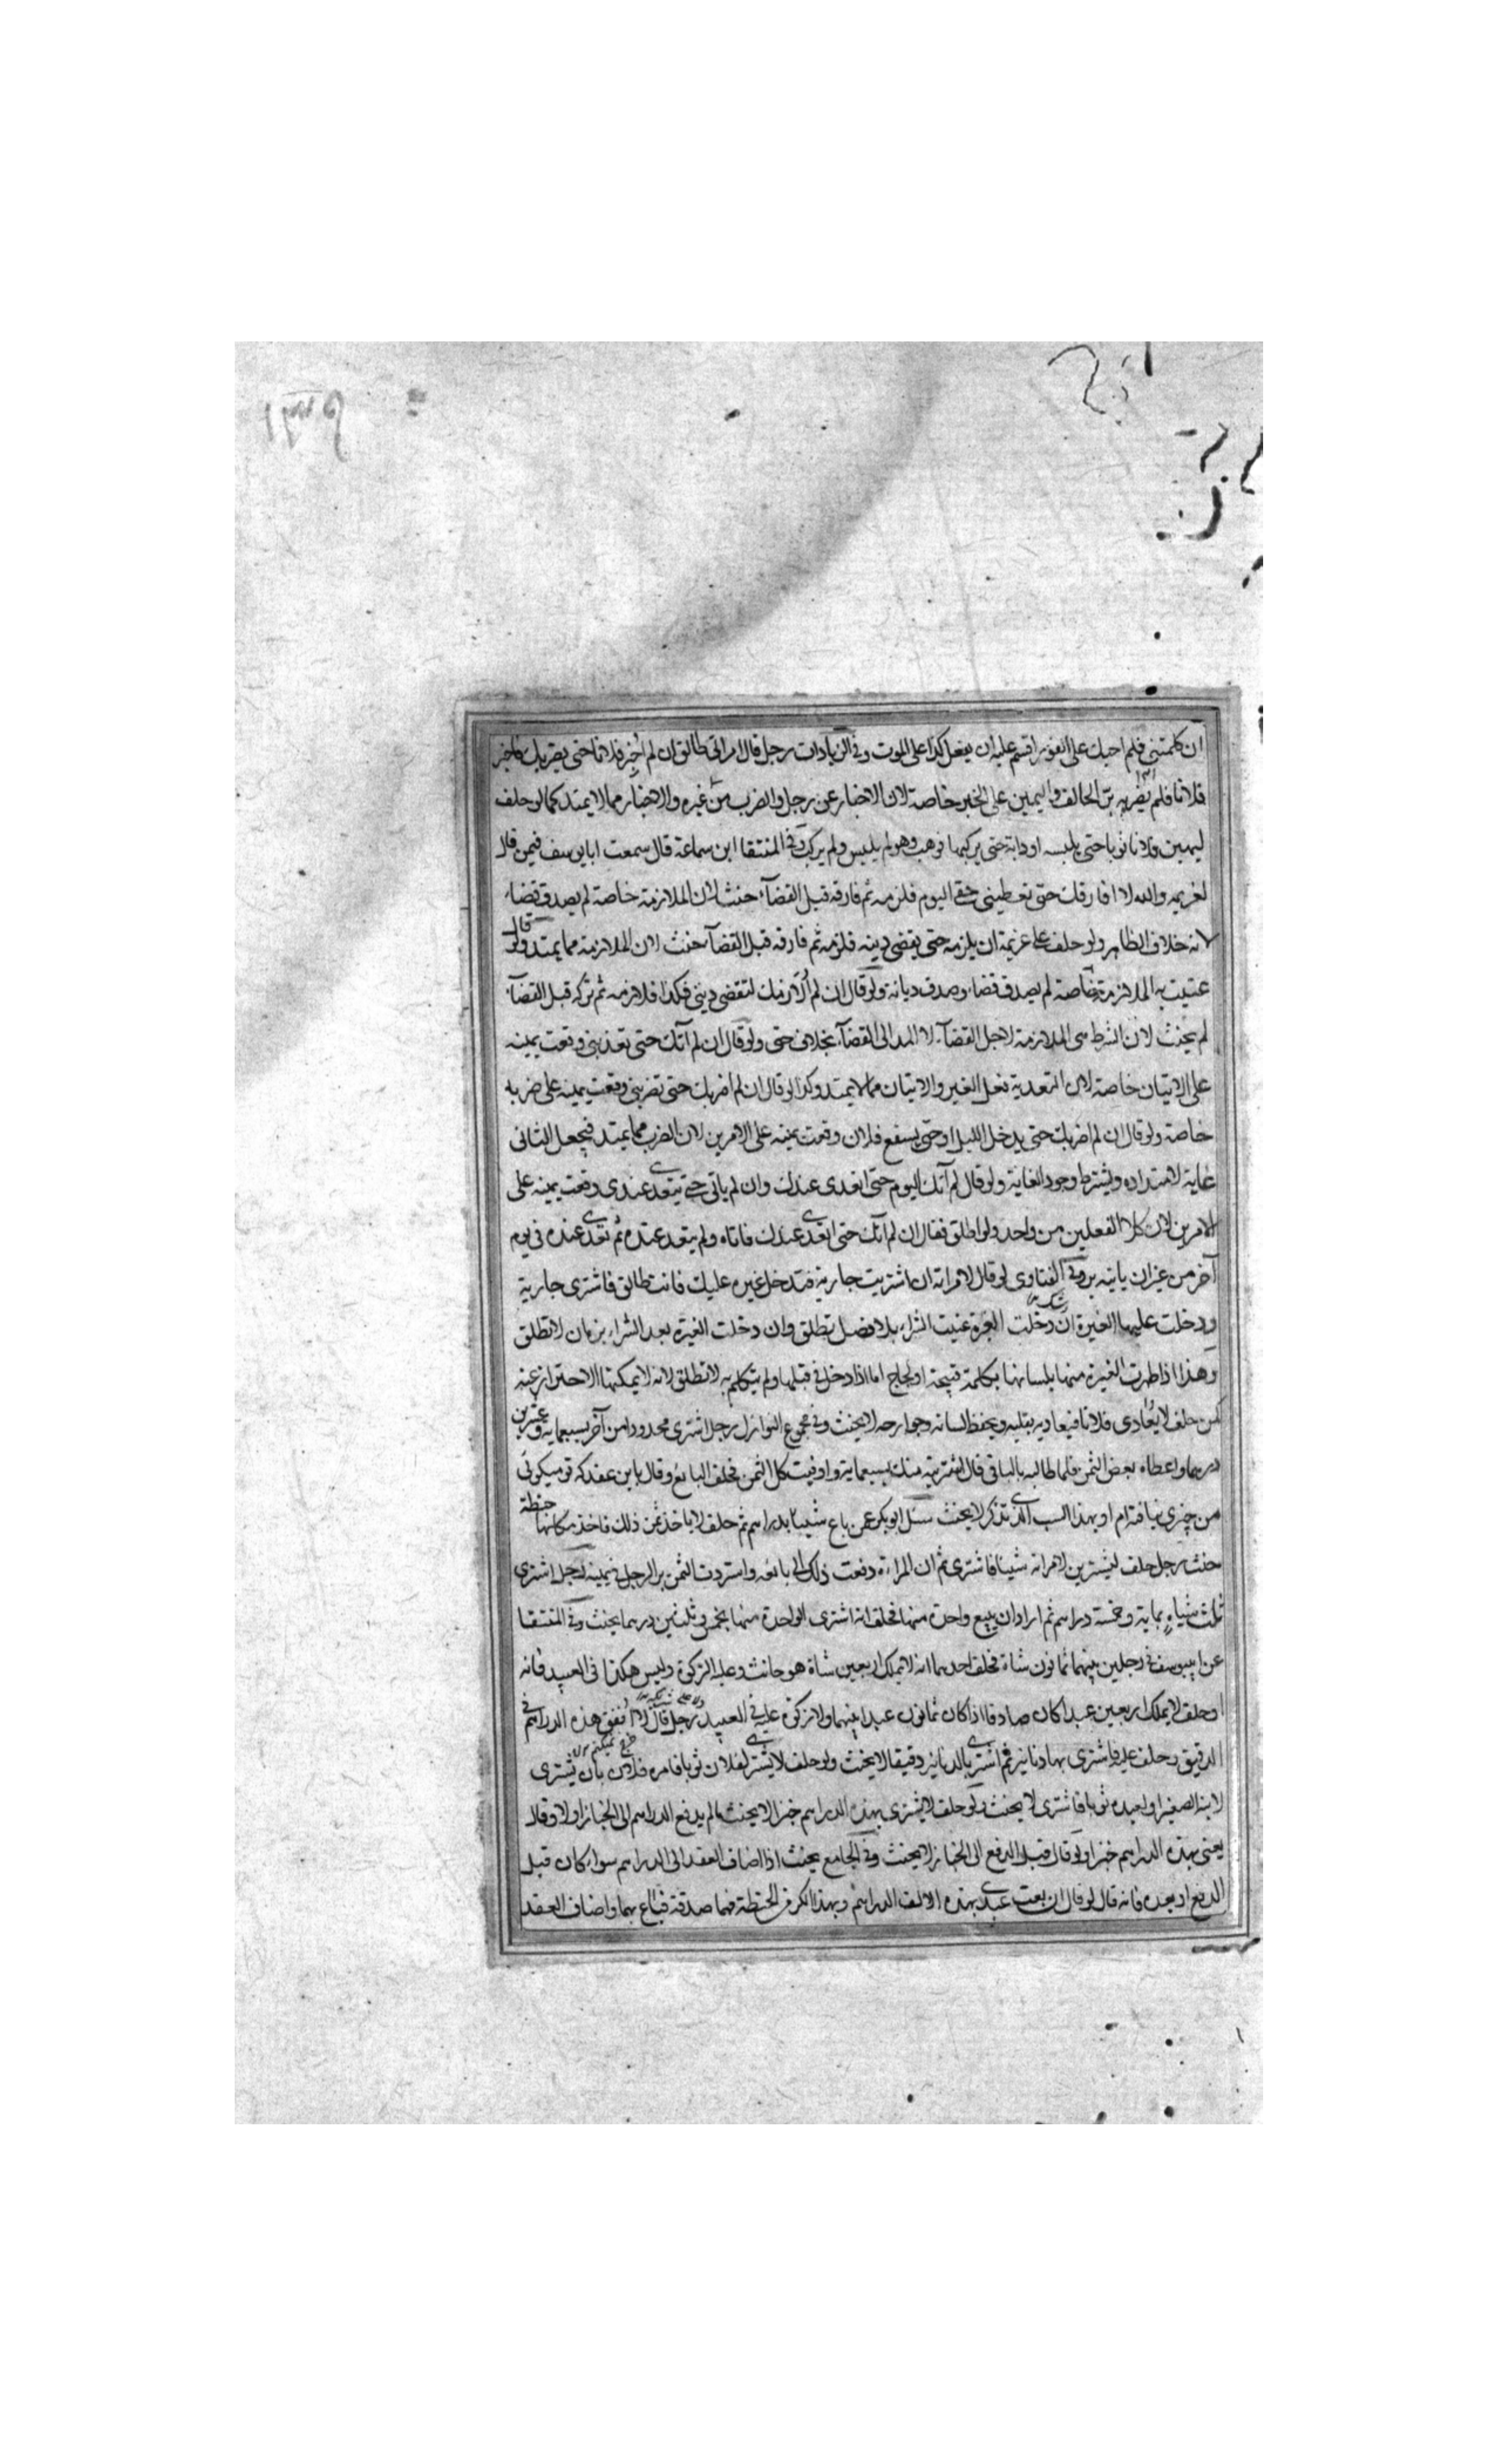 ان كلمتني فلم اجبك على الفور اقسم عليه ان يفعل كذا على الموت وفي الزيادات رجل قال امراتي طالق ان لم اخبر فلانا حتى يضربك فاخبر
فلانا فلم يضربه برّ الحالف واليمين على الخبر خاصة لان الاخبار عن رجل والضرب من غيره والاخبار مما لا يمتد كما لو حلف
ليهبن فلانا ثوبا حتى يلبسه او دابة حتى يركبها فوهب وهو لم يلبس ولم يركب وفي المنتقا ابن سماعة قال سمعت ابا يوسف فيمن قال
لغريمه والله لا افارقك حتى تعطيني حقي اليوم فلزمه ثم فارقه قبل القضآء حنث لان الملازمة خاصة لم يصدق قضاء
لانه خلاف الظاهر ولو حلف على غريمه ان يلزمه حتى يقضي دينه فلزمه ثم فارقه قبل القضآء حنث لان الملازمة مما يمتد ولو قال
عنيت به الملازمة خاصة لم يصدق قضاء وصدق ديانة ولو قال ان لم الازمك لتقضي ديني فكذا فلازمه ثم تركه قبل القضآء
لم يحنث لان الشرط هي الملازمة لاجل القضآء لا المد الى القضآء بخلاف حتى ولو قال ان لم آتك حتى تغذيني وقعت يمينه
على الاتيان خاصة لان التغدية فعل الغير والاتيان مما لا يمتد وكذا لو قال ان لم اضربك حتى تضربني وقعت يمينه على ضربه
خاصة ولو قال ان لم اضربك حتى يدخل الليل او حتى يشفع فلان وقعت يمينه على الامرين لان الضرب مما يمتد فيجعل الثاني
غاية لامتداده ويشترط وجود الغاية ولو قال لم آتك اليوم حتى اتغدى عندك وان لم ياتي حتى يتغدى عندي وقعت يمينه على
الامرين لان كلا الفعلين من واحد ولو اطلق فقال ان لم آتك حتى اتغدى عندك فاتاه ولم يتغد عنده ثم تغدى عنده في يوم
آخر من غير ان ياتيه بر وفي الفتاوى لو قال لامراته ان اشتريت جارية فتدخل غيره عليك فانت طالق فاشترى جارية
ودخلت عليها الغيرة ان دخلت الغيرة عنيت الشراء بلا فصل تطلق وان دخلت الغيرة بعد الشراء بزمان لا تطلق
وهذا اذا ظهرت الغيرة منها بلسانها بكلمة قبيحة او لجاج اما اذا دخل في قبلها ولم يتكلم به لا تطلق لانه لا يمكنها الاحتراز عنه
كمن حلف لا يعادي فلانا فيعاديه بقلبه ويحفظ لسانه وجوارحه لا يحنث وفي مجموع النوازل رجل اشترى محدودا من آخر بسبعماية وعشرين
درهما واعطاه بعض الثمن فلما طالبه بالباقي قال اشتريته منك بسبعماية واوفيت كل الثمن فحلف البائع وقال باين عقد كه تو ميكوئى
من چيزى نيافته ام او بهذا السبب الذي تذكر لا يحنث سئل ابو بكر عمن باع شيئا بدراهم ثم حلف لا ياخذ ثمن ذلك فاخذ مكانها حنطة
حنث رجل حلف ليشترين لامراته شيئا فاشترى ثم ان المراءة دفعت ذلك الى بائعه واستردت الثمن بر الرجل في يمينه رجل اشترى
ثلث شياه بماية وخمسة دراهم ثم اراد ان يبيع واحدة منها فحلف انه اشترى الواحدة منها بخمس وثلثين درهما يحنث وفي المنتقا
عن ابي يوسف في رجلين بينهما ثمانون شاة فحلف احدهما انه لا يملك اربعين شاة هو حانث وعليه الزكوة وليس هكذا في العبيد فانه
او حلف لا يملك اربعين عبدا كان صادقا اذا كان ثمانون عبدا بينهما ولا زكوة عليه في العبيد رجل قال لا انفق هذه الدراهم في
الدقيق وحلف عليه فاشترى بها دنانير ثم اشترى بالدنانير دقيقا لا يحنث ولو حلف لا يشتري لفلان ثوبا فامره فلان بان يشترى
لابنه الصغير او لعبده ثوبا فاشترى لا يحنث ولو حلف لا يشترى بهذه الدراهم خبزا لا يحنث ما لم يدفع الدراهم الى الخباز اولا وقال
يعنى بهذه الدراهم خبزا ولو قال قبل الدفع الى الخباز لا يحنث وفي الجامع يحنث اذا اضاف العقد الى الدراهم سواء كان قبل
الدفع او بعده فانه قال لو قال ان بعت عبدي بهذه الالف الدراهم وبهذا الكر من الحنطة فهما صدقة فباع بهما واضاف العقد